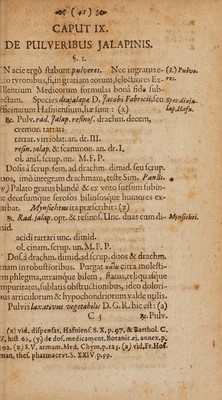 (41)
CAPUT IX.
DE PULVERIBUS JALAPINIS.
§. I.
N acie ergò stabunt pulveres. Nec ingratus e-
nim tyronibus, si in gratiam eorum, selectiores Ex-
Medicorum formulas bonâ fide sub-
Species diajalapa D. Jacobi Fabricii, seu
officinarum Hafniensium, hæ sunt: (x)
(1.) Pulve-
res.
Spec. diaja-
lap. Hafn.
℞ Pulv. rad. jalap. resinos. drachm. decem,
cremor. tartari
tartar. vitriolat. an. dr. III.
resin. jalap. & scammon. an. dr. I.
ol. anis. scrup. un. M. F. P.
Dosis â scrup. sem. ad drachm. dimid. seu scrup.
duos, imò integram drachmam, teste Sim. Paulli.
(y) Palato gratus blandè & ex voto sursum
deorsumque serosos biliososque humores ex-
Mynsichtus ita præscribit: (z)
℞ Rad. jalap. opt. & resinos. Unc. duas cum di-
Mynsichti.
acidi tartari unc. dimid.
ol. cinam. scrup. un. M. F. P.
Dos. â drachm. dimid. ad scrup. duos & drachm.
unam in robustioribus. Purgat citra molesti-
am phlegma, utramque bilem, flatus, reliquasque
impuritates, sublatis obstructionibus, ideo dolori-
bus articulorum & hypochondriorum valde utilis.
Pulvis laxativus vegetabilis D. G. R. hic est: (a)
C 5 ℞ Pulv.
(x) vid. dispensat. Hafniens. S. X. p. 97. & Barthol. C.
IV, hist. 62. (y) de dos. medicament. Botanic. ei. annex. p.
(z) S. V. armam. Med. Chym. p. 125. (a) vid. Fr. Hof-
man. thes. pharmaceut. S. XXIV p. 59.